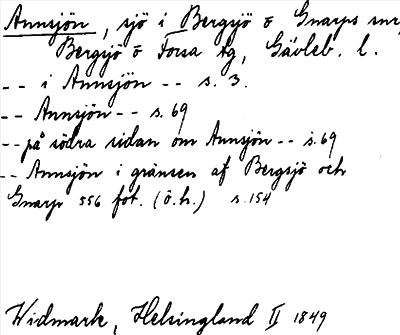 Annsjön, sjö i Bergsjö o Gnarps snr,
Bergsjö o Forsa tg, Gävleb. l.
-- i Annsjön -- s. 3.
-- Annsjön -- s. 69
-- på södra sidan om Annsjön -- s. 69
-- Annsjön i gränsen af Bergsjö och
Gnarp 556 fot. (ö.h.) s. 154
Widmark, Helsingland II 1849